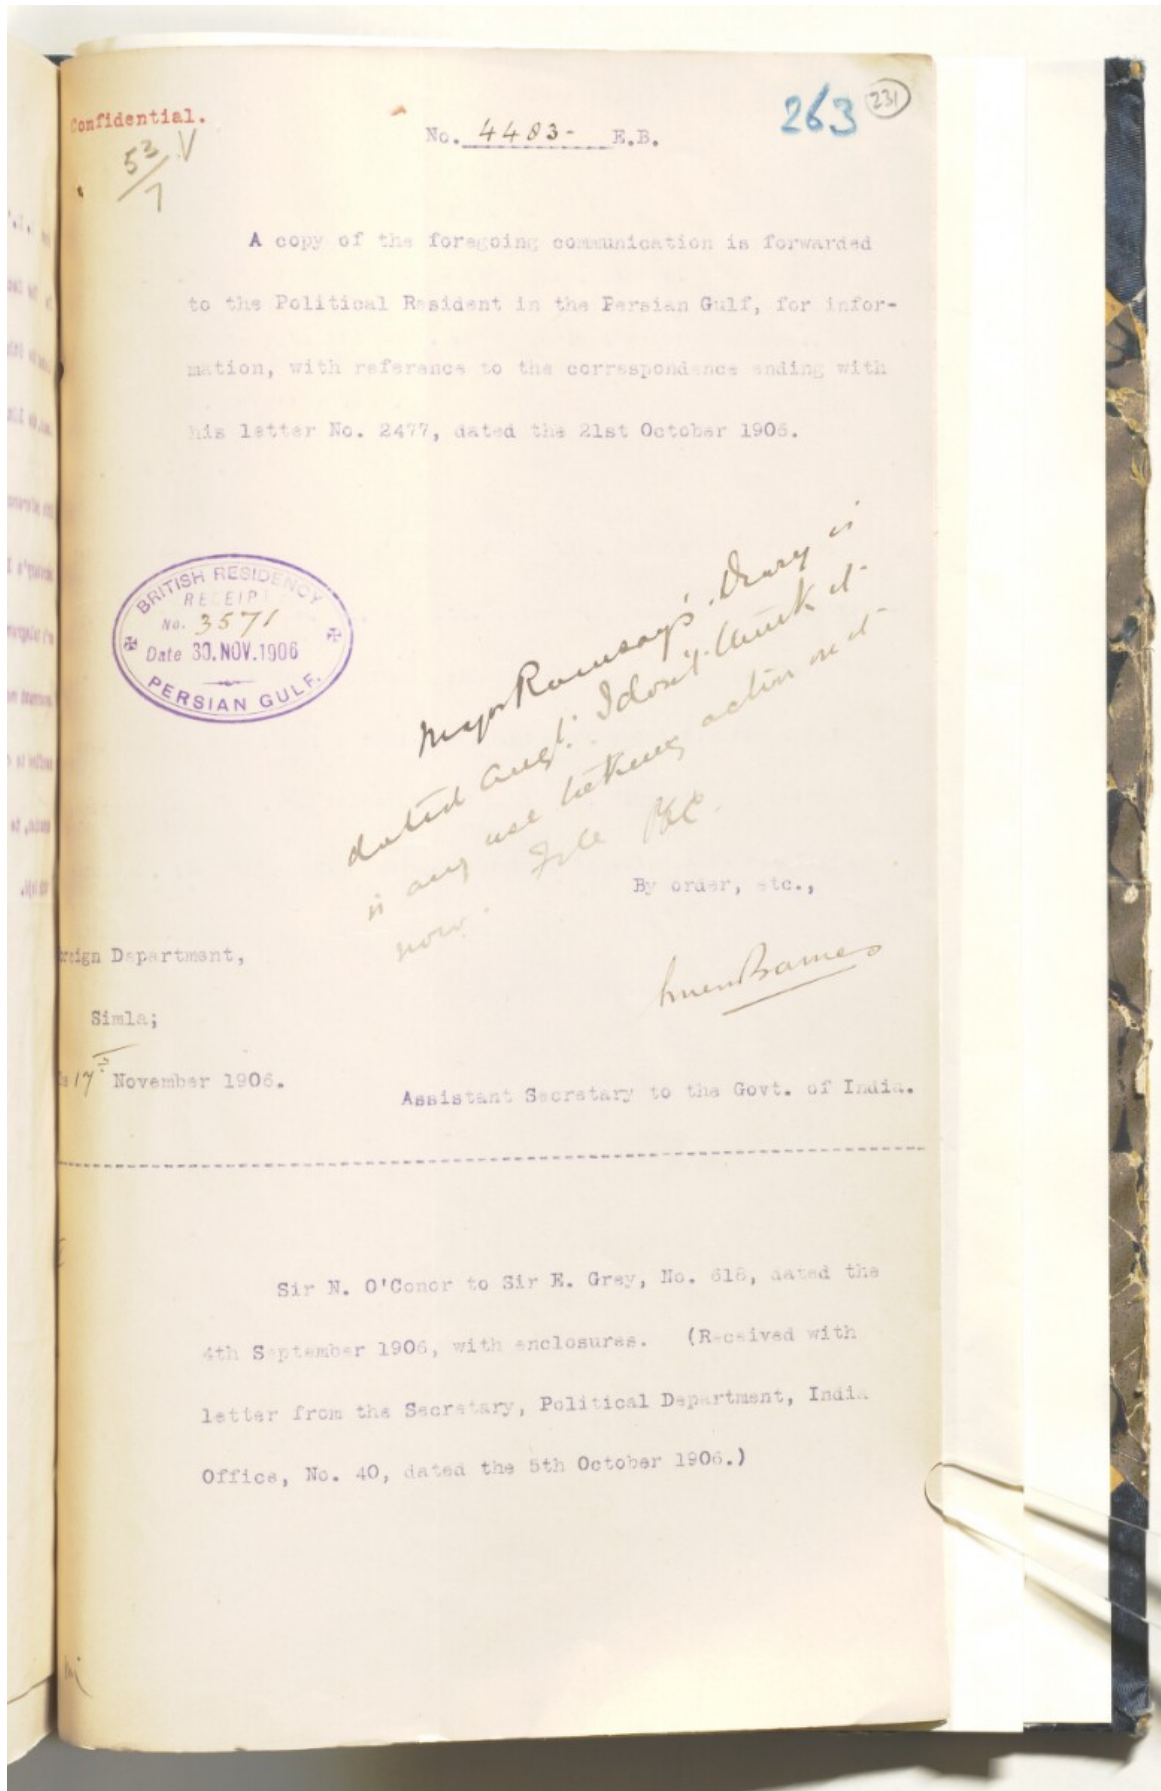 Confidential.
263
231
53/7 V
No. 4483- E.B.
A copy of the foregoing communication is forwarded
to the Political Resident in the Persian Gulf, for infor-
mation, with reference to the correspondence ending with
his letter No. 2477, dated the 21st October 1906.
BRITISH RESIDENCY
RECEIPT
No. 3571
Date 30.NOV.1906
PERSIAN GULF.
Major Ramsay's Diary is
dated Augt. I don't think it
is any use taking action on it
now. File PZC.
By order, etc.,
reign Department,
Simla;
17th November 1906.
Assistant Secretary to the Govt. of India.
Sir N. O'Conor to Sir E. Grey, No. 618, dated the
4th September 1906, with enclosures. (Received with
letter from the Secretary, Political Department, India
Office, No. 40, dated the 5th October 1906.)